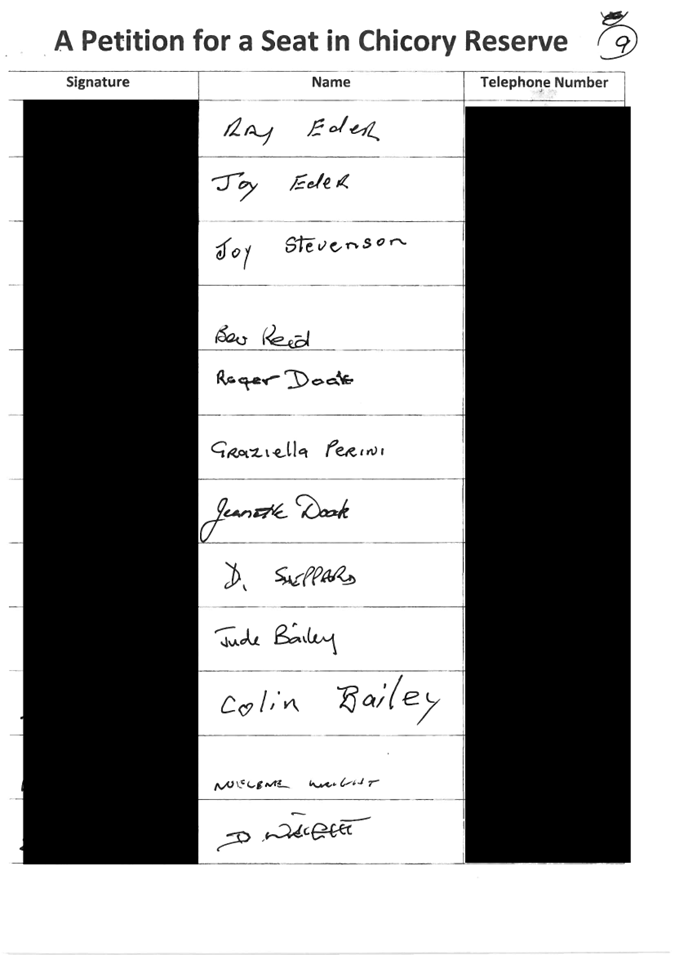 A Petition for a Seat in Chicory Reserve
9
Signature Name Telephone Number
Ray Eder
Joy Eder
Joy Stevenson
Bev Reid
Roger Doak
Graziella Perini
Jeanette Doak
D. Sheppard
Jude Bailey
Colin Bailey
D